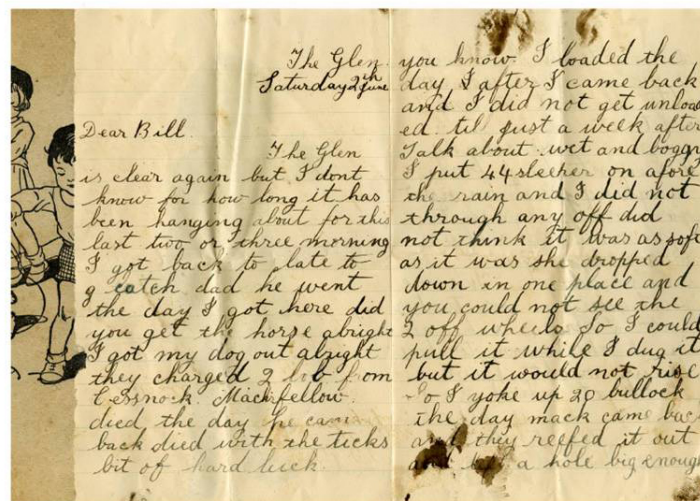 The Glen
Saturday 2th June
Dear Bill.
The Glen
is clear again but I dont
know for how long it has
been hanging about for this
last two or three morning
I got back to late to
g catch dad he went
the day I got here did
you get the horse alright
I got my dog out alright
they charged 2 bob from
Cessnock. Mack fellow
died the day he came
back died with the ticks
bit of hard luck.
you know. I loaded the
day I after I came back
and I did not get unload
ed. til just a week after
Talk about wet and boggy
I put 44 sleeher on afore
the rain and I did not
through any off did
not think it was as soft
as it was she dropped
down in one place and
you could not see the
2 off wheels So I could
pull it while I dug it
but it would not rise
So I yoke up 20 bullock
the day mack came bac
and they reefed it out
and a hole big enough